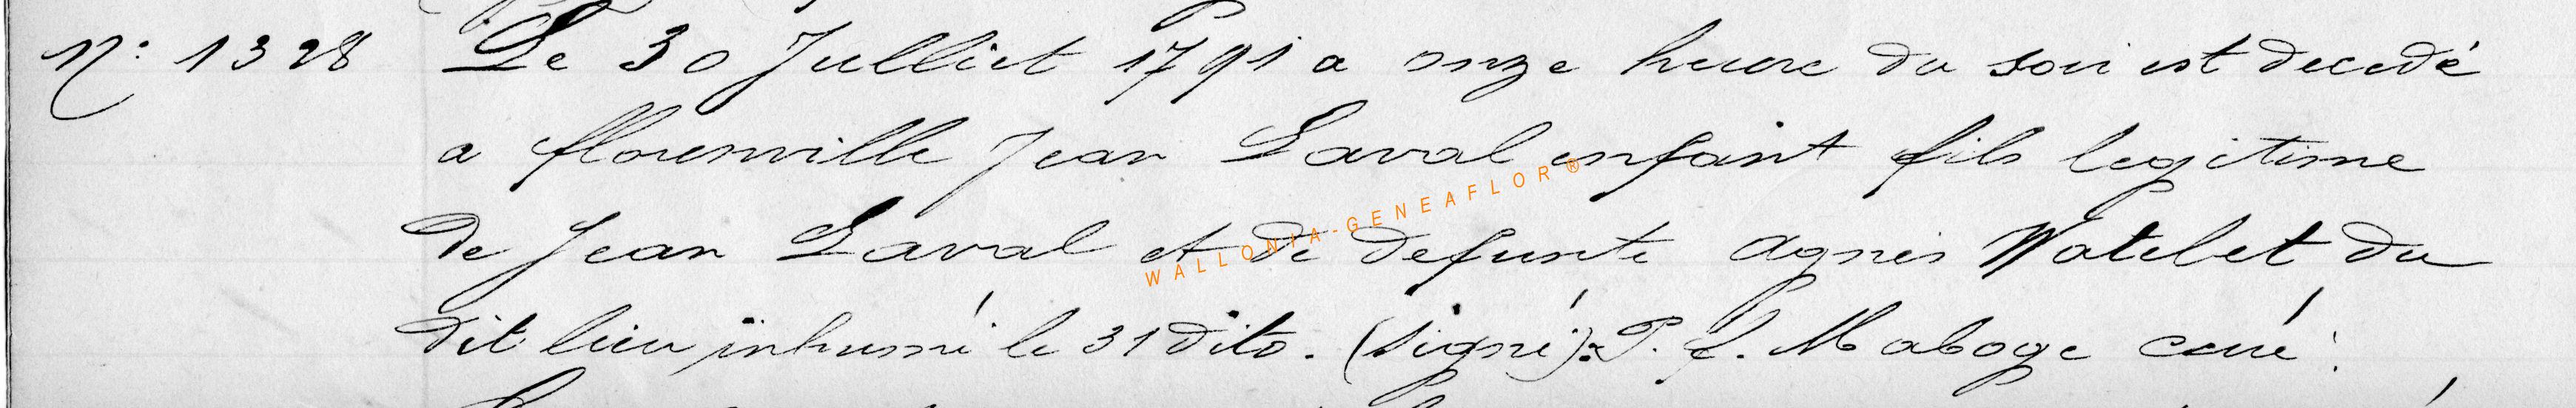 N: 1328 Le 30 Julliet 1791 a onze heure du soir est decedé
a florenville Jean Laval enfant fils legitime
de Jean Laval et de defunte agnes Watelet du
dit lieu inhumé le 31 dito. (signé): P. f. Maboge curé.
WALLONIA-GENEAFLOR®